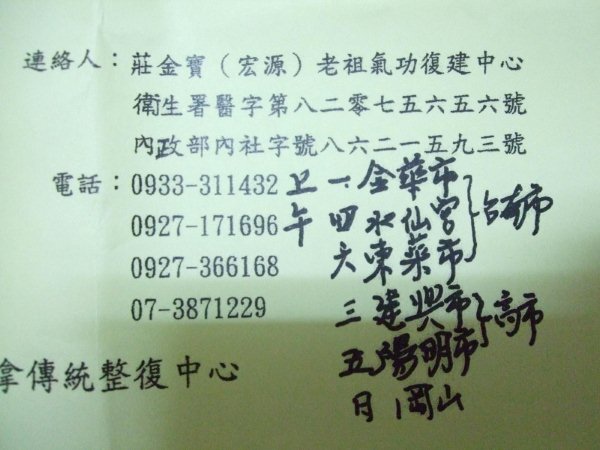 連絡人：莊金寶（宏源）老祖氣功復建中心
衛生署醫字第八二零七五六五六號
內政部內社字號八六二一五九三號
電話：0933-311432
0927-171696
0927-366168
07-3871229
拿傳統整復中心
上午
一 金華市
四 水仙宮
六 東菜市
台南市
三 建興市
五 陽明市
高市
日 岡山